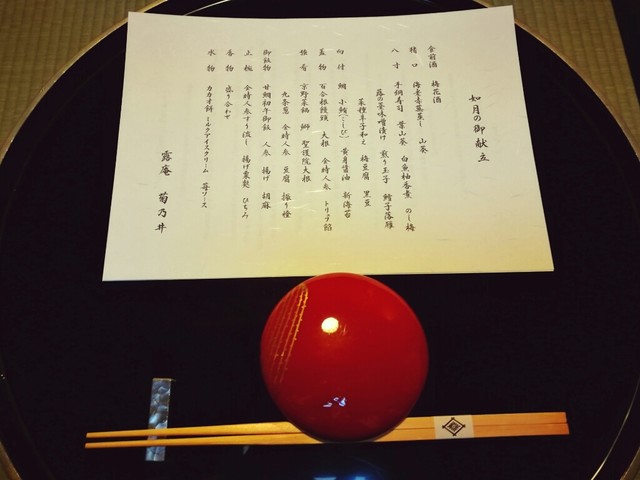 如月の御献立
食前酒 梅花酒
猪口 海老赤蕪蒸し 山葵
八寸 手綱寿司 葉山葵 白魚柚香煮 のし梅
蕗の薹味噌漬け 煎り玉子 鱈子落雁
菜種辛子和え 梅豆腐 黒豆
向付 鯛 小鮪(こしび) 黄身醤油 新海苔
蓋物 百合根饅頭 大根 金時人参 トリュフ餡
肴 京野菜鍋 鰤 聖護院大根
九条葱 金時人参 豆腐 振り柚
御飯物 甘鯛初午御飯 人参 揚げ 胡麻
止椀 金時人参すり流し 揚げ粟麩 ひちみ
香物 盛り合わせ
水物 カカオ餅 ミルクアイスクリーム 苺ソース
露庵 菊乃井